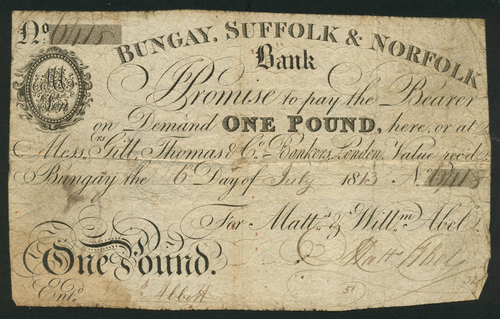 No. 6,418
BUNGAY, SUFFOLK & NORFOLK
Bank
Promise to pay the Bearer
on Demand ONE POUND, here, or at
Messrs. Gill, Thomas & Co. Bankers, London. Value recd.
Bungay the 6 Day of July 1813 No. 6,418
For Mattw. & Willm. Abel.
One Pound.
Matt Abel
Entd. Abbott